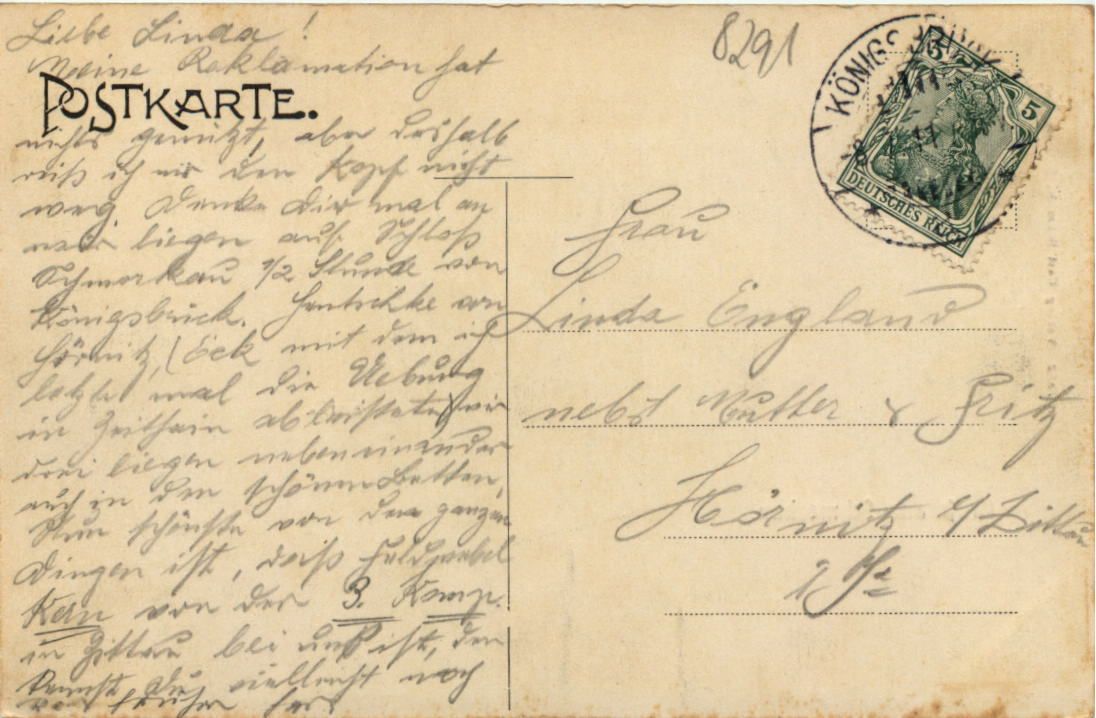 Liebe Linda!
Meine Reklamation hat
POSTKARTE.
nichts genützt, aber deshalb
reiß ich mir den Kopf nicht
weg. Denke Dir mal an
wir liegen auf Schloß
Schmorkau 1/2 Stunde von
Königsbrück. Hentschke von
Hörnitz, (Eck mit dem ich
letztes mal die Uebung
in Zeithain ableistete) wir
drei liegen nebeneinander
auch in den schönen Betten,
Nun schönste von den ganzen
Dingen ist, daß Feldwebel
Kern von der 3. Komp.
in Zittau bei uns ist, den
kennst du vielleicht noch
von früher her
8291
KÖNIGSBRÜCK
11
5
5
DEUTSCHES REICH
Frau
Linda England
nebst Mutter & Fritz
Hörnitz b/Zittau
i/Sa